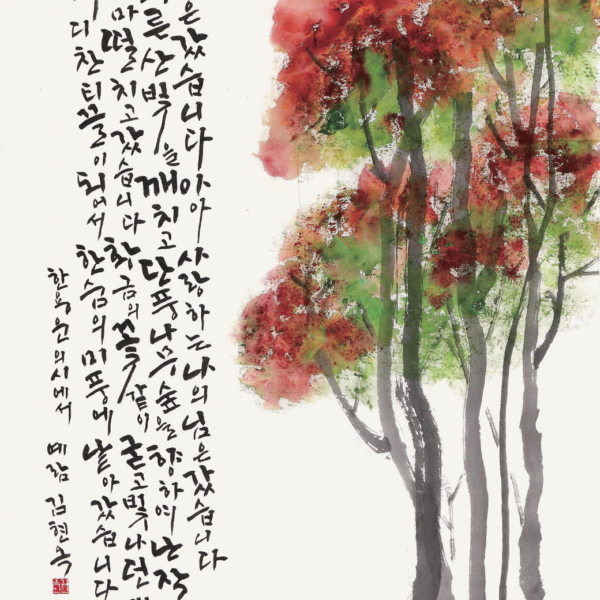 은 갔습니다 아아 사랑하는 나의 님은 갔습니다
른 산빛을 깨치고 단풍나무 숲을 향하여 난 작
마 떨치고 갔습니다 황금의 꽃같이 굳고 빛나던
디찬 티끌이 되어서 한숨의 미풍에 날아갔습니다
한용운의 시에서 예람